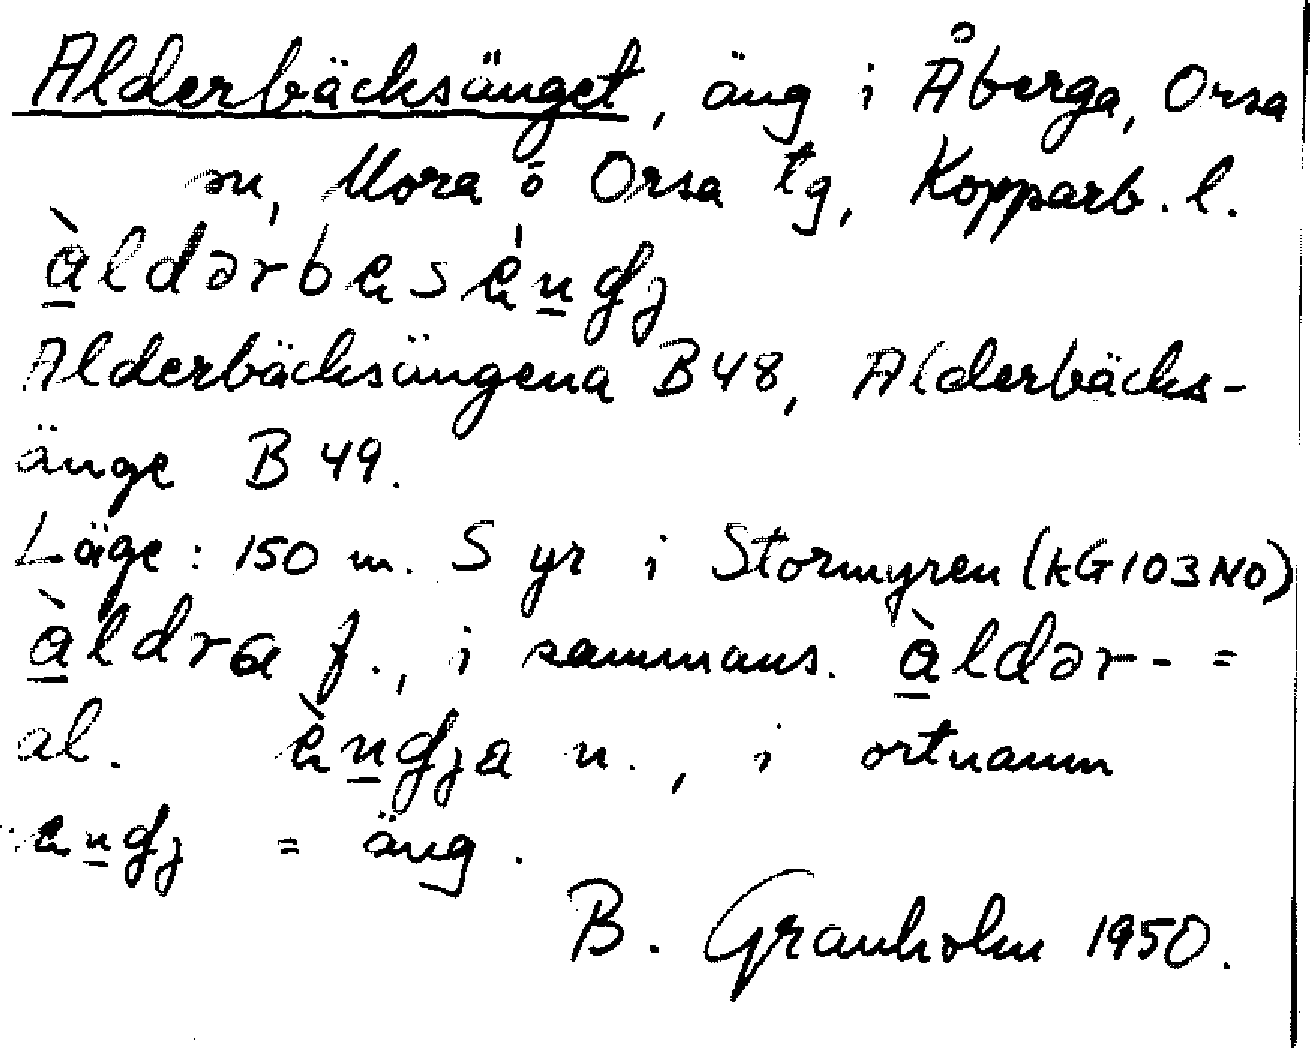 Alderbäcksänget, äng i Åberga, Orsa
sn, Mora o Orsa tg, Kopparb. l.
Alderbäcksängena B 48, Alderbäcks-
änge B 49.
Läge: 150 m. S yr i Stormyren (KG103NO)
àldra f., i sammans. àldər- =
al. n., i ortnamn
= äng.
B. Granholm 1950.